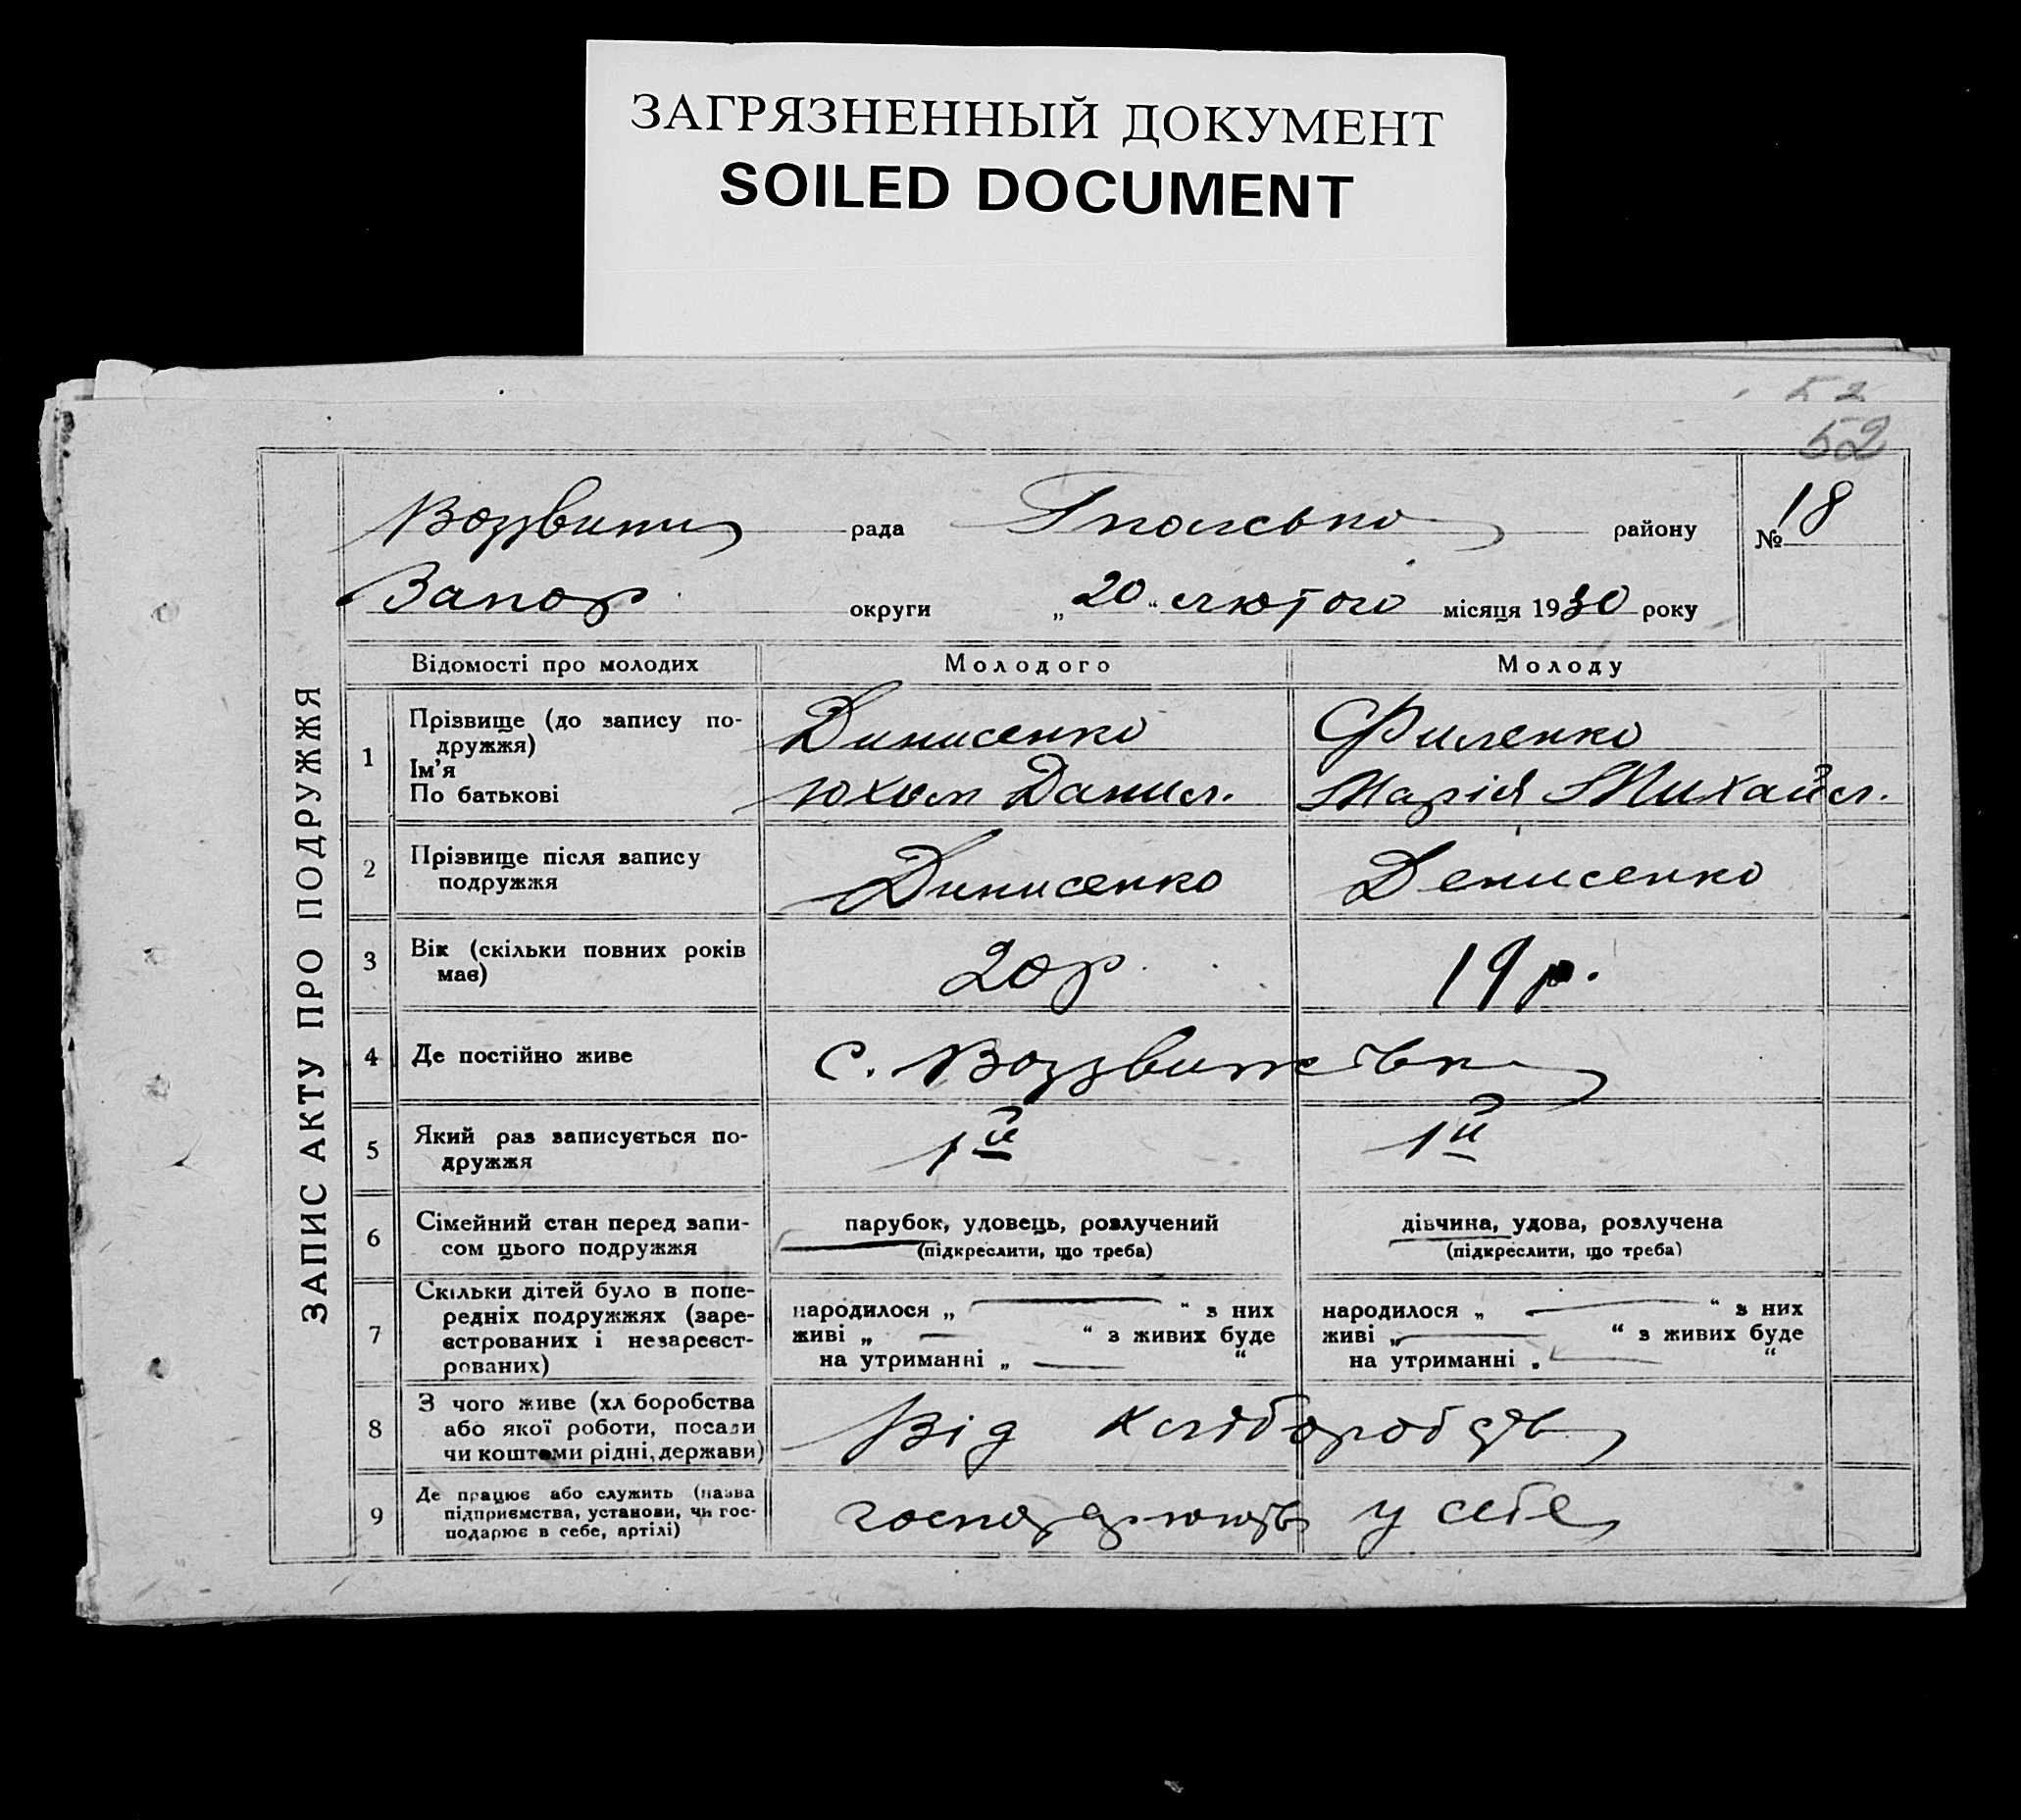 ЗАГРЯЗНЕННЫЙ ДОКУМЕНТ
SOILED DOCUMENT
52
52
ЗАПИС АКТУ ПРО ПОДРУЖЖЯ
рада району № 18
Запор округи „20“ лютого місяця 1930 року
Відомості про молодих Молодого Молоду
1 Прізвище (до запису по-
дружжя)
Ім'я
По батькові
Динисенко Филенко
Юхим Данил. Марія Михайл.
2 Прізвище після запису
подружжя
Динисенко Денисенко
3 Вік (скільки повних років
має)
20 р. 19 р.
4 Де постійно живе с. Воздвижівка
5 Який раз записується по-
дружжя
1й 1й
6 Сімейний стан перед запи-
сом цього подружжя
парубок, удовець, розлучений дівчина, удова, розлучена
(підкреслити, що треба) (підкреслити, що треба)
7 Скільки дітей було в попе-
редніх подружжях (заре-
єстрованих і незареєст-
рованих)
народилося „ “ з них народилося „ “ з них
живі „ “ з живих буде живі „ “ з живих буде
на утриманні „ “ на утриманні „ “
8 З чого живе (хл боробства
або якої роботи, посади
чи коштоми рідні, держави)
Від хліборобств
9 Де працює або служить (назва
підприємства, установи, чи гос-
подарює в себе, артілі)
господарюють у себе